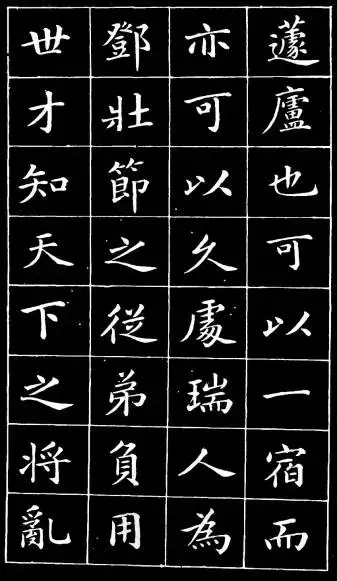 蘧廬也可以一宿而
亦可以久處瑞人為
鄧壯節之從弟負用
世才知天下之將亂